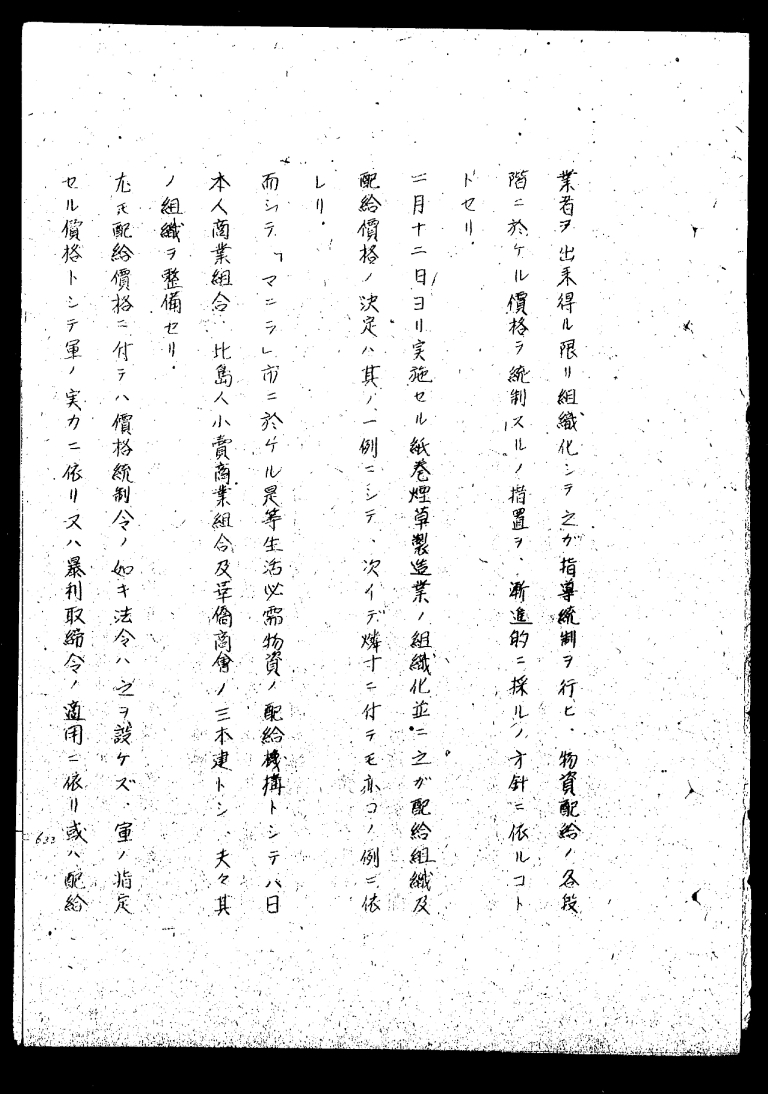 業者ヲ出来得ル限リ組織化シテ之ガ指導統制ヲ行ヒ、物資配給ノ各段
階ニ於ケル價格ヲ統制スルノ措置ヲ、漸進的ニ採ルノ方針ニ依ルコト
トセリ.
二月十二日ヨリ実施セル紙巻煙草製造業ノ組織化並ニ之ガ配給組織及
配給價格ノ決定ハ其ノ一例ニシテ、次イデ燐寸ニ付テモ亦コノ例ニ依
レリ.
而シテ「マニラ」市ニ於ケル是等生活必需物資ノ配給機構トシテハ日
本人商業組合、比島人小賣商業組合及華僑商會ノ三本建トシ、夫々其
ノ組織ヲ整備セリ.
尤モ配給價格ニ付テハ價格統制令ノ如キ法令ハ之ヲ設ケズ、軍ノ指定
セル價格トシテ軍ノ実力ニ依リ又ハ暴利取締令ノ適用ニ依リ或ハ配給
633